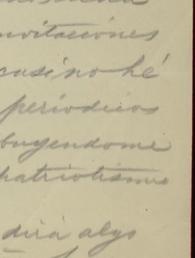 invitaciones
casi no hé
periodicos
buyendome
patriotismo
dirá algo